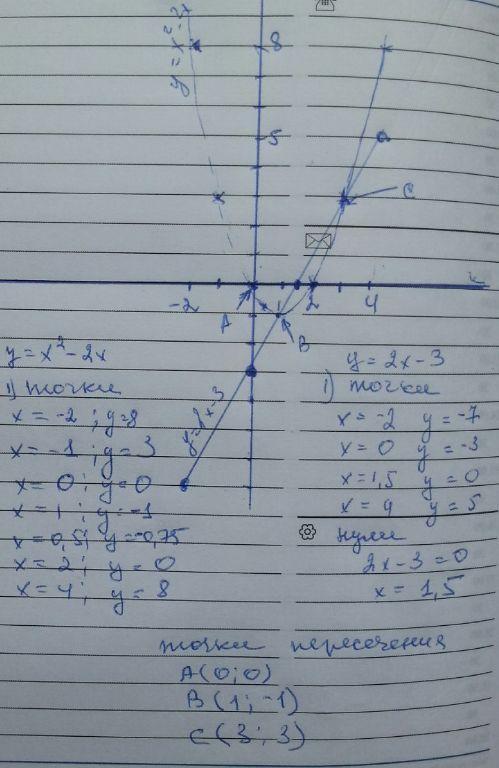 y = x² - 2x
8
5
C
-2
1
2
4
x
A
B
y = 2x - 3
y = x² - 2x
1) точки
x = -2 ; y = 8
x = -1 ; y = 3
x = 0 ; y = 0
x = 1 ; y = -1
x = 0,5; y = -0,75
x = 2 ; y = 0
x = 4 ; y = 8
y = 2x - 3
1) точки
x = -2 y = -7
x = 0 y = -3
x = 1,5 y = 0
x = 4 y = 5
нули
2x - 3 = 0
x = 1,5
точки пересечения
A (0 ; 0)
B (1 ; -1)
C (3 ; 3)